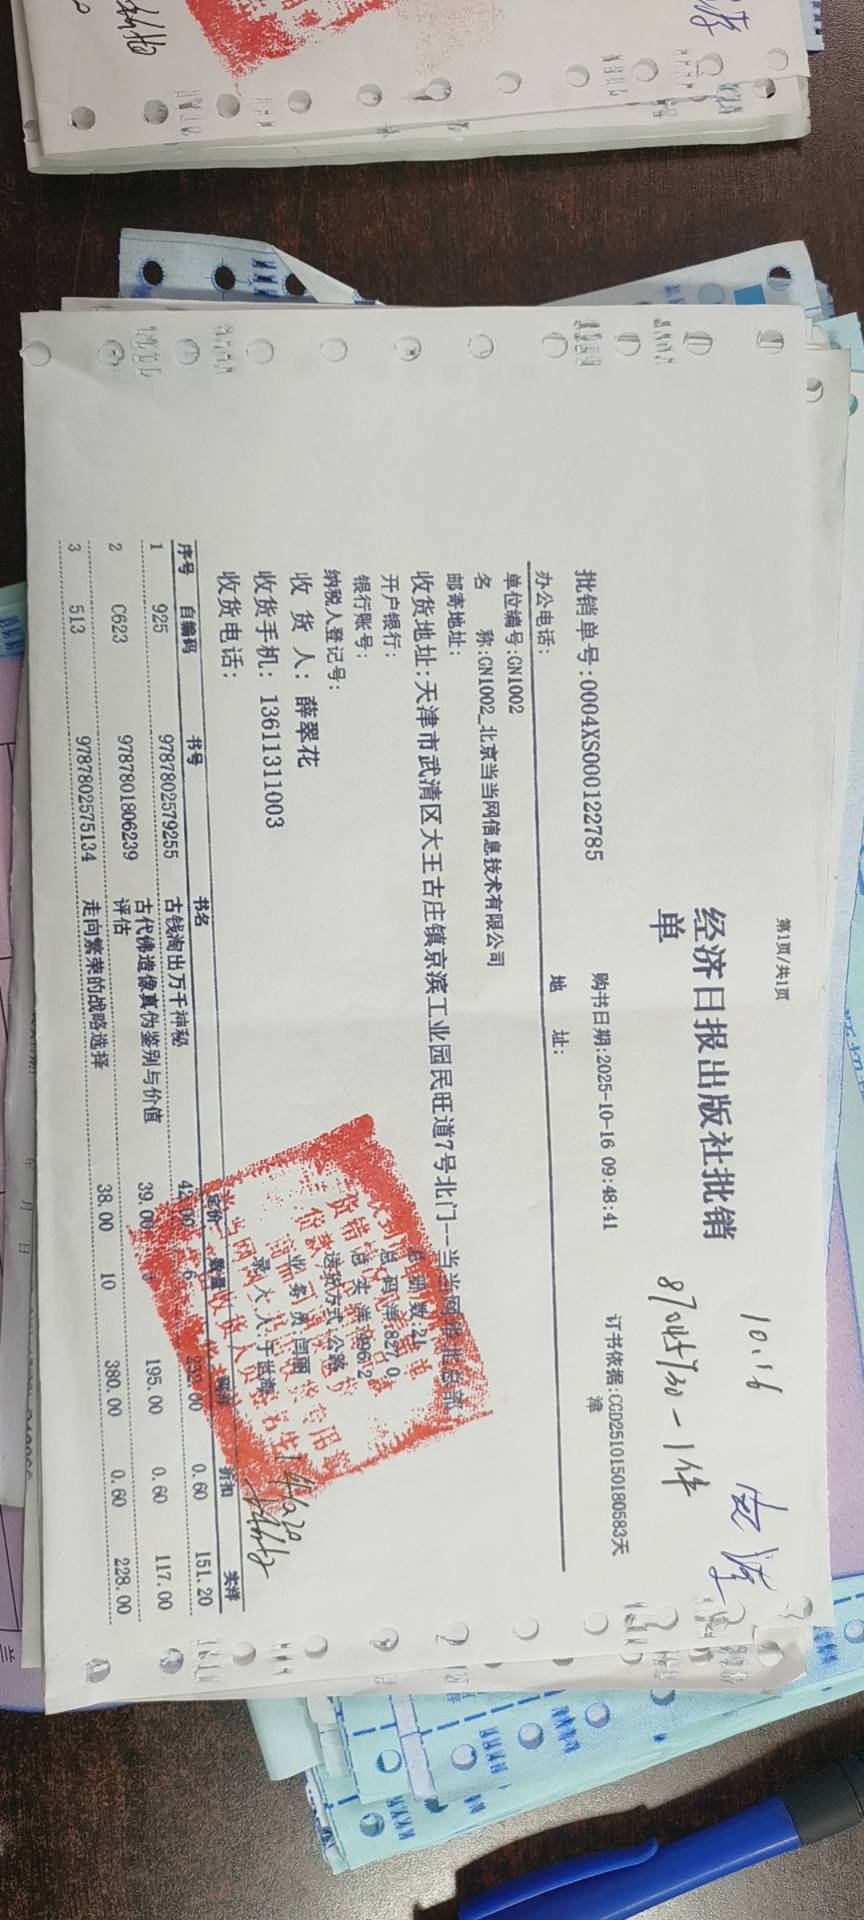 第1页/共1页
10.16
经济日报出版社批销
单
87045730-1件
批销单号:0004XS000122785 购书日期:2025-10-16 09:48:41 订书依据:CGD2510150180583天
津
办公电话: 地 址:
单位编号:GN1002
名 称:GN1002_北京当当网信息技术有限公司
邮寄地址:
收货地址:天津市武清区大王古庄镇京滨工业园民旺道7号北门--当当网华北总部
开户银行: 总册数:21
银行账号: 总码洋:827.0
纳税人登记号: 总实洋:496.2
收 货 人: 薛翠花 送货方式:公路
收货手机: 13611311003 业务员:闫丽
收货电话: 录入人:于海
序号 自编码 书号 书名 定价 数量 码洋 折扣 实洋
1 925 9787802579255 古钱淘出万千神秘 42.00 6 252.00 0.60 151.20
古代佛造像真伪鉴别与价值
2 C623 9787801806239 评估 39.00 5 195.00 0.60 117.00
3 513 9787802575134 走向繁荣的战略选择 38.00 10 380.00 0.60 228.00